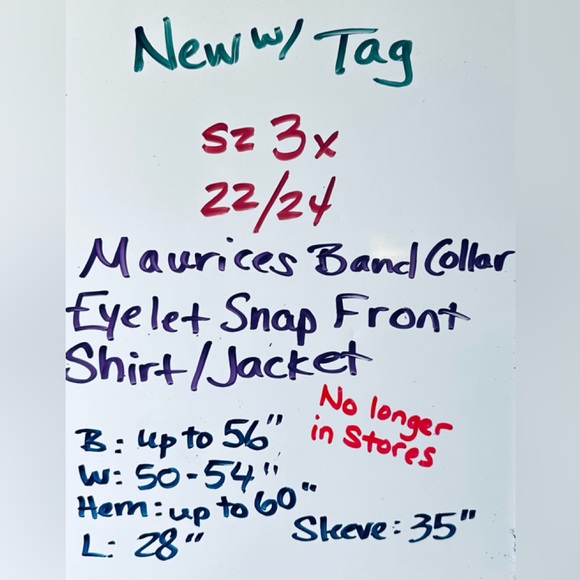 New w/ Tag
sz 3x
22/24
Maurices Band Collar
Eyelet Snap Front
Shirt/Jacket
No longer
in stores
B: up to 56"
W: 50-54"
Hem: up to 60"
L: 28"
Sleeve: 35"